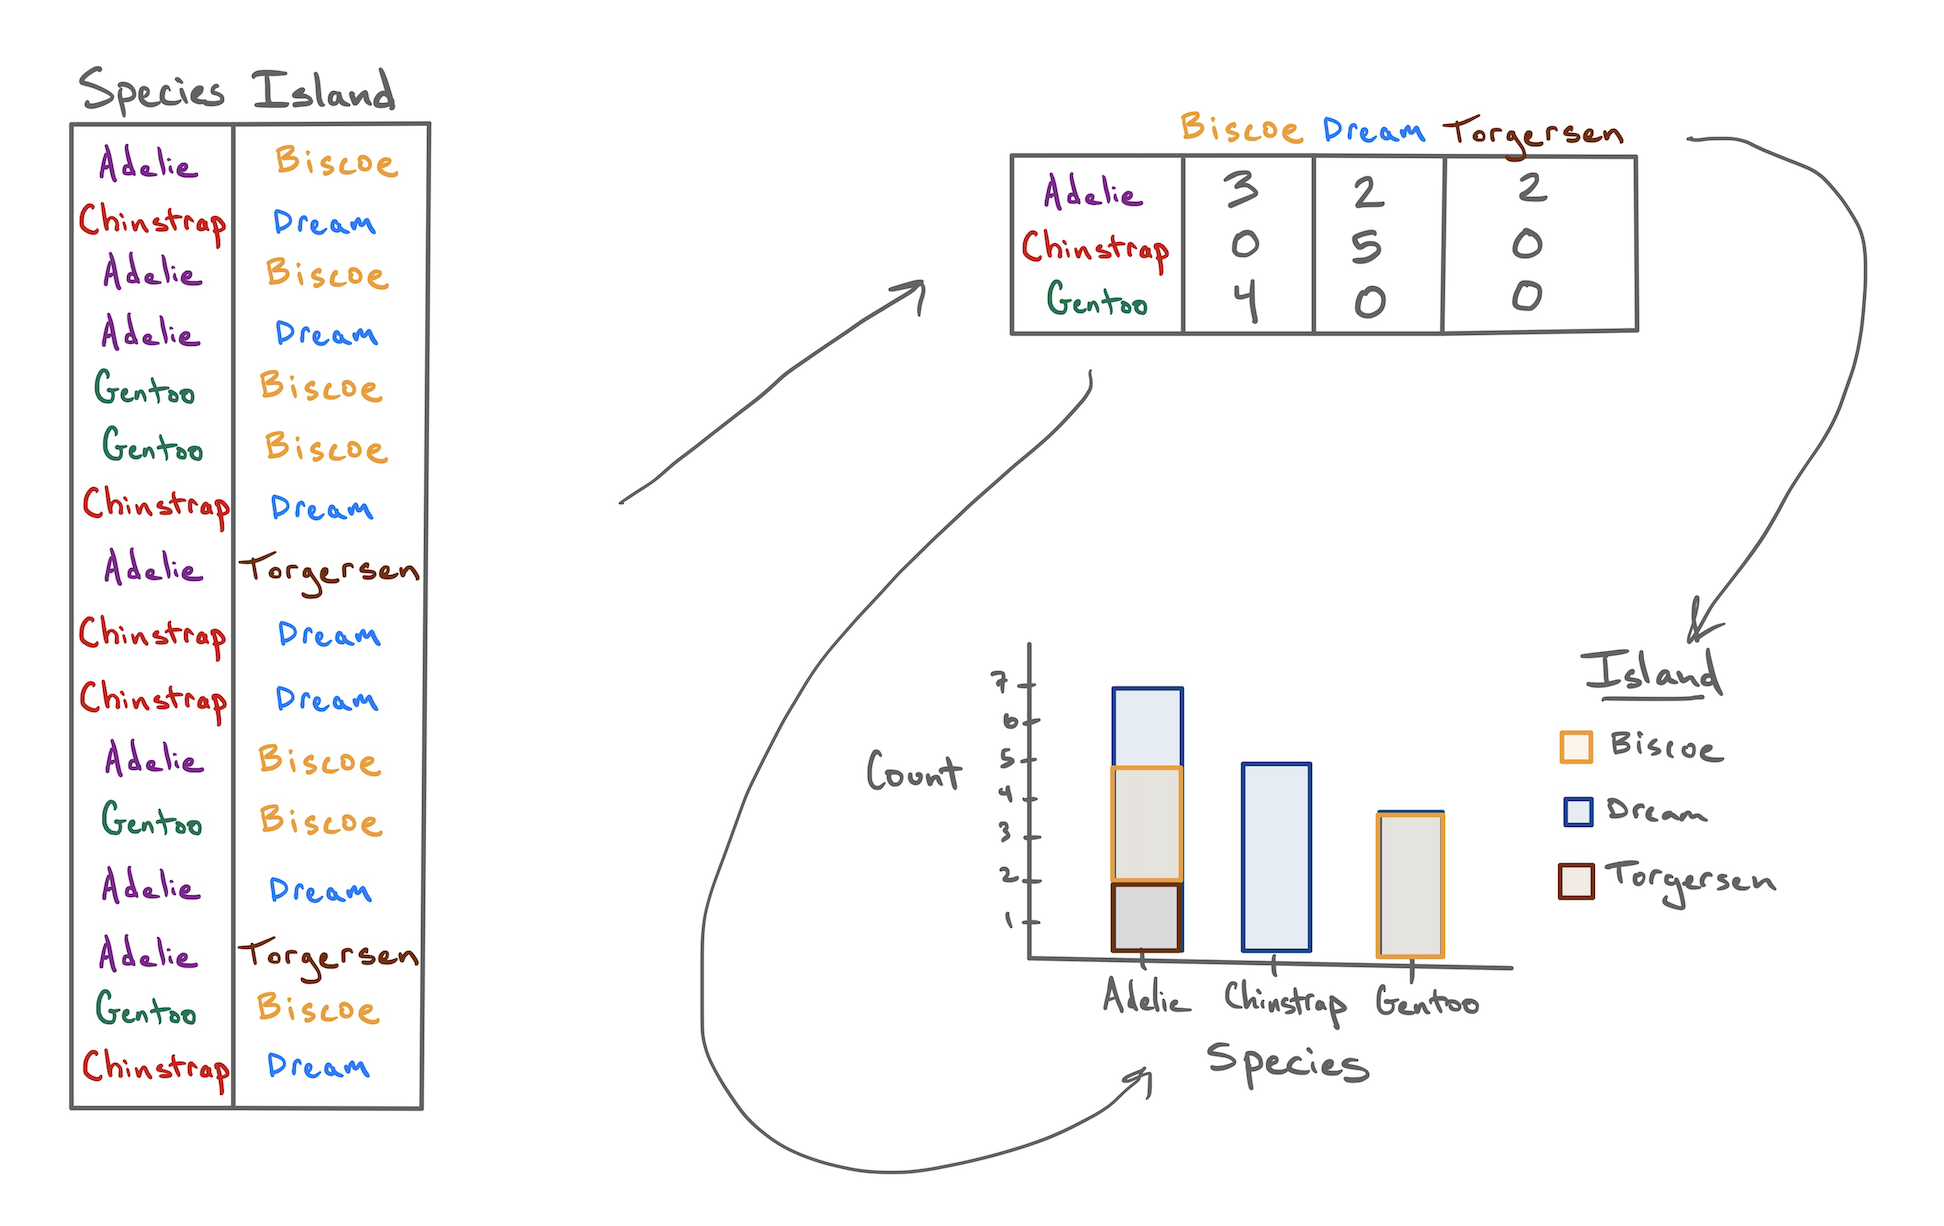 Species Island
Adelie Biscoe
Chinstrap Dream
Adelie Biscoe
Adelie Dream
Gentoo Biscoe
Gentoo Biscoe
Chinstrap Dream
Adelie Torgersen
Chinstrap Dream
Chinstrap Dream
Adelie Biscoe
Gentoo Biscoe
Adelie Dream
Adelie Torgersen
Gentoo Biscoe
Chinstrap Dream
Biscoe Dream Torgersen
Adelie 3 2 2
Chinstrap 0 5 0
Gentoo 4 0 0
Count
7
6
5
4
3
2
1
Adelie Chinstrap Gentoo
Species
Island
Biscoe
Dream
Torgersen